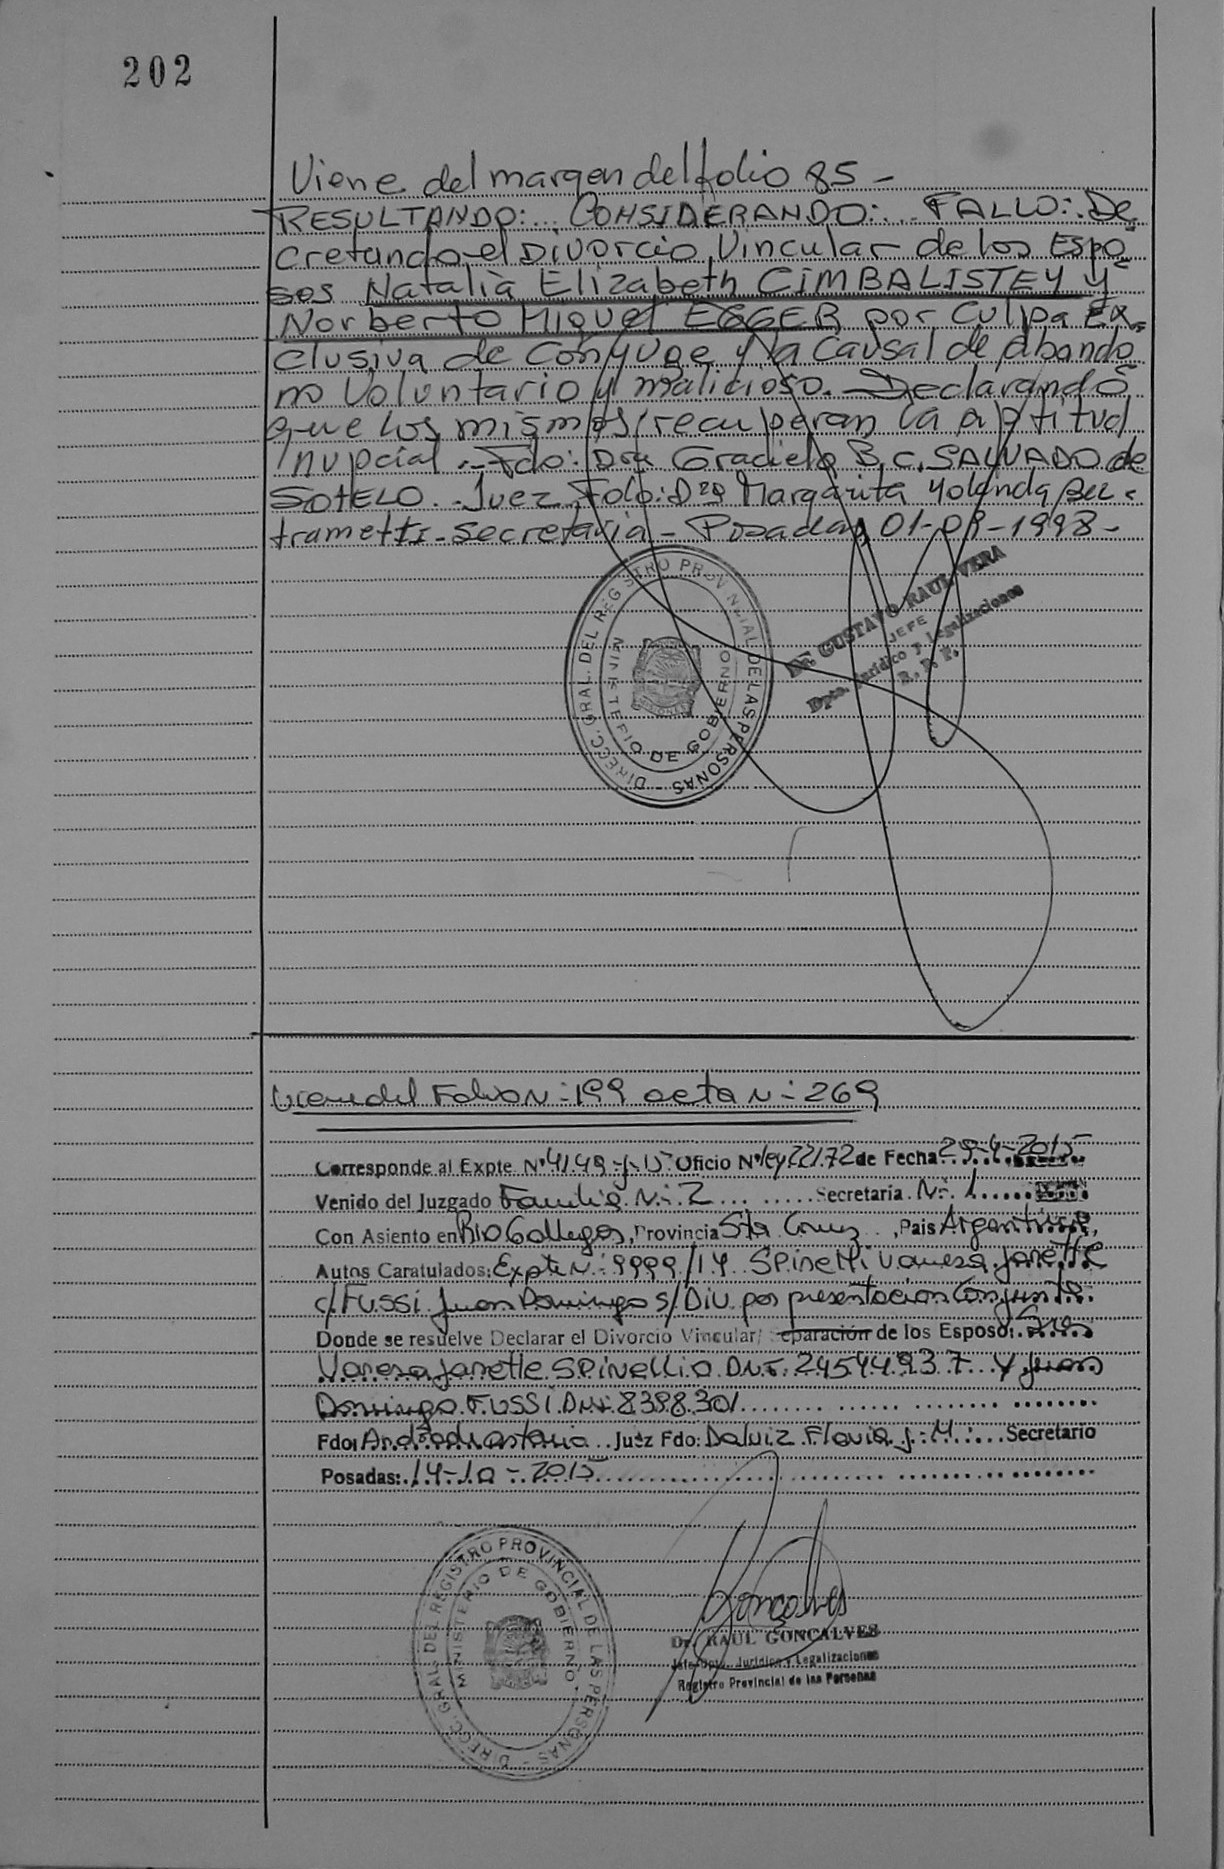 202
Viene del margen del folio 85 -
RESULTANDO:... CONSIDERANDO:... FALLO:. De
cretando el Divorcio Vincular de los Espo
sos Natalia Elizabeth CIMBALISTEY y
Norberto Miguel EGGER por culpa Ex
clusiva de Conyuge y la causal de abando
no Voluntario y malicioso. - Declarando
que los mismos recuperan la aptitud
nupcial .- Fdo: Dra Graciela B. C. SALVADO de
SOTELO. - Juez. Fdo: Dra Margarita Yolanda
trametti - Secretaria - Posadas, 01-09-1998-
DIRECC. GRAL. DEL REGISTRO PROVINCIAL DE LAS PERSONAS -
MINISTERIO DE GOBIERNO
Dr. GUSTAVO RAUL VERA
JEFE
Dpto. Jurídico y Legalizaciones
R. P. P.
Viene del Folio N - 199 acta N - 269
Corresponde al Expte N° 4149-J-15 Oficio N° ley 22172 de Fecha 29-4-2015
Venido del Juzgado Familia N - 2 ... Secretaria N - 1
Con Asiento en Rio Gallegos, Provincia Sta Cruz, Pais Argentina,
Autos Caratulados: Expte N - 9999/14 SPinelli Vanesa Janette
c/ FUSSI Juan Domingo s/ Div. por presentacion Conjunta.
Donde se resuelve Declarar el Divorcio Vincular/ Separación de los Esposo:
Vanesa Janette SPINELLI D.N.I. 24544937 y Juan
Domingo FUSSI DNI 8398301
Fdo: Juez Fdo: Dalviz Flavia J. M. Secretario
Posadas: 14-10-2015
DIRECC. GRAL. DEL REGISTRO PROVINCIAL DE LAS PERSONAS -
MINISTERIO DE GOBIERNO
Goncalves
Dr. RAUL GONCALVES
Jefe Dpto. Jurídico y Legalizaciones
Registro Provincial de las Personas